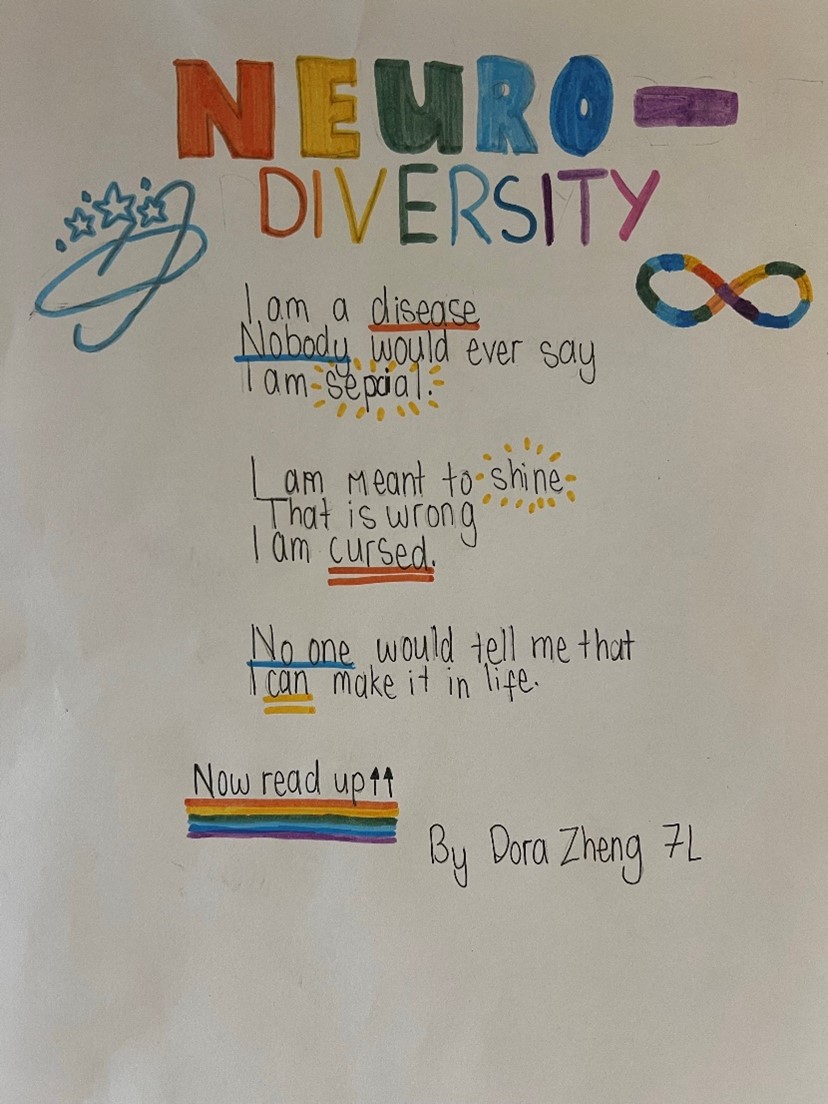 NEURO-
DIVERSITY
I am a disease
Nobody would ever say
I am sepcial.
I am meant to shine
That is wrong
I am cursed.
No one would tell me that
I can make it in life.
Now read up↑↑
By Dora Zheng 7L